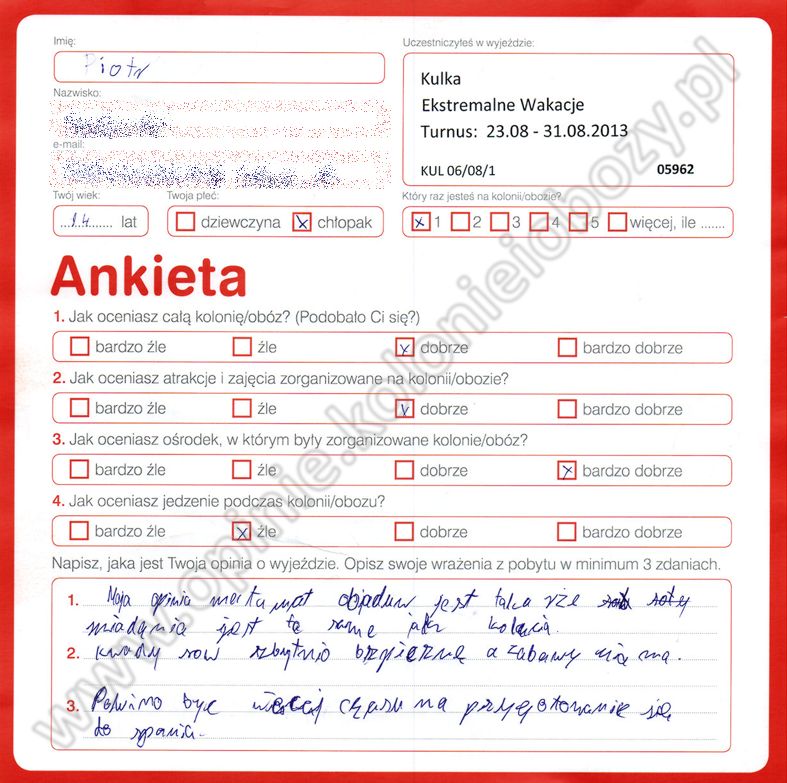 Imię:
Piotr
Uczestniczyłeś w wyjeździe:
Kulka
Ekstremalne Wakacje
Turnus: 23.08 - 31.08.2013
KUL 06/08/1 05962
Nazwisko:
e-mail:
Twój wiek:
14 lat
Twoja płeć:
dziewczyna x chłopak
Który raz jesteś na kolonii/obozie?
x 1 2 3 4 5 więcej, ile .......
Ankieta
1. Jak oceniasz całą kolonię/obóz? (Podobało Ci się?)
bardzo źle źle x dobrze bardzo dobrze
2. Jak oceniasz atrakcje i zajęcia zorganizowane na kolonii/obozie?
bardzo źle źle v dobrze bardzo dobrze
3. Jak oceniasz ośrodek, w którym były zorganizowane kolonie/obóz?
bardzo źle źle dobrze x bardzo dobrze
4. Jak oceniasz jedzenie podczas kolonii/obozu?
bardzo źle x źle dobrze bardzo dobrze
Napisz, jaka jest Twoja opinia o wyjeździe. Opisz swoje wrażenia z pobytu w minimum 3 zdaniach.
1. Moja opinia na temat objaduw jest taka rze
śniadania jest te same jak kolacja.
2. kwady sow zbytnio bezpieczne a zabawy nie ma.
3. Powino być więcej czasu na przygotowanie się
do spania.
www.opinie.kolonieiobozy.pl